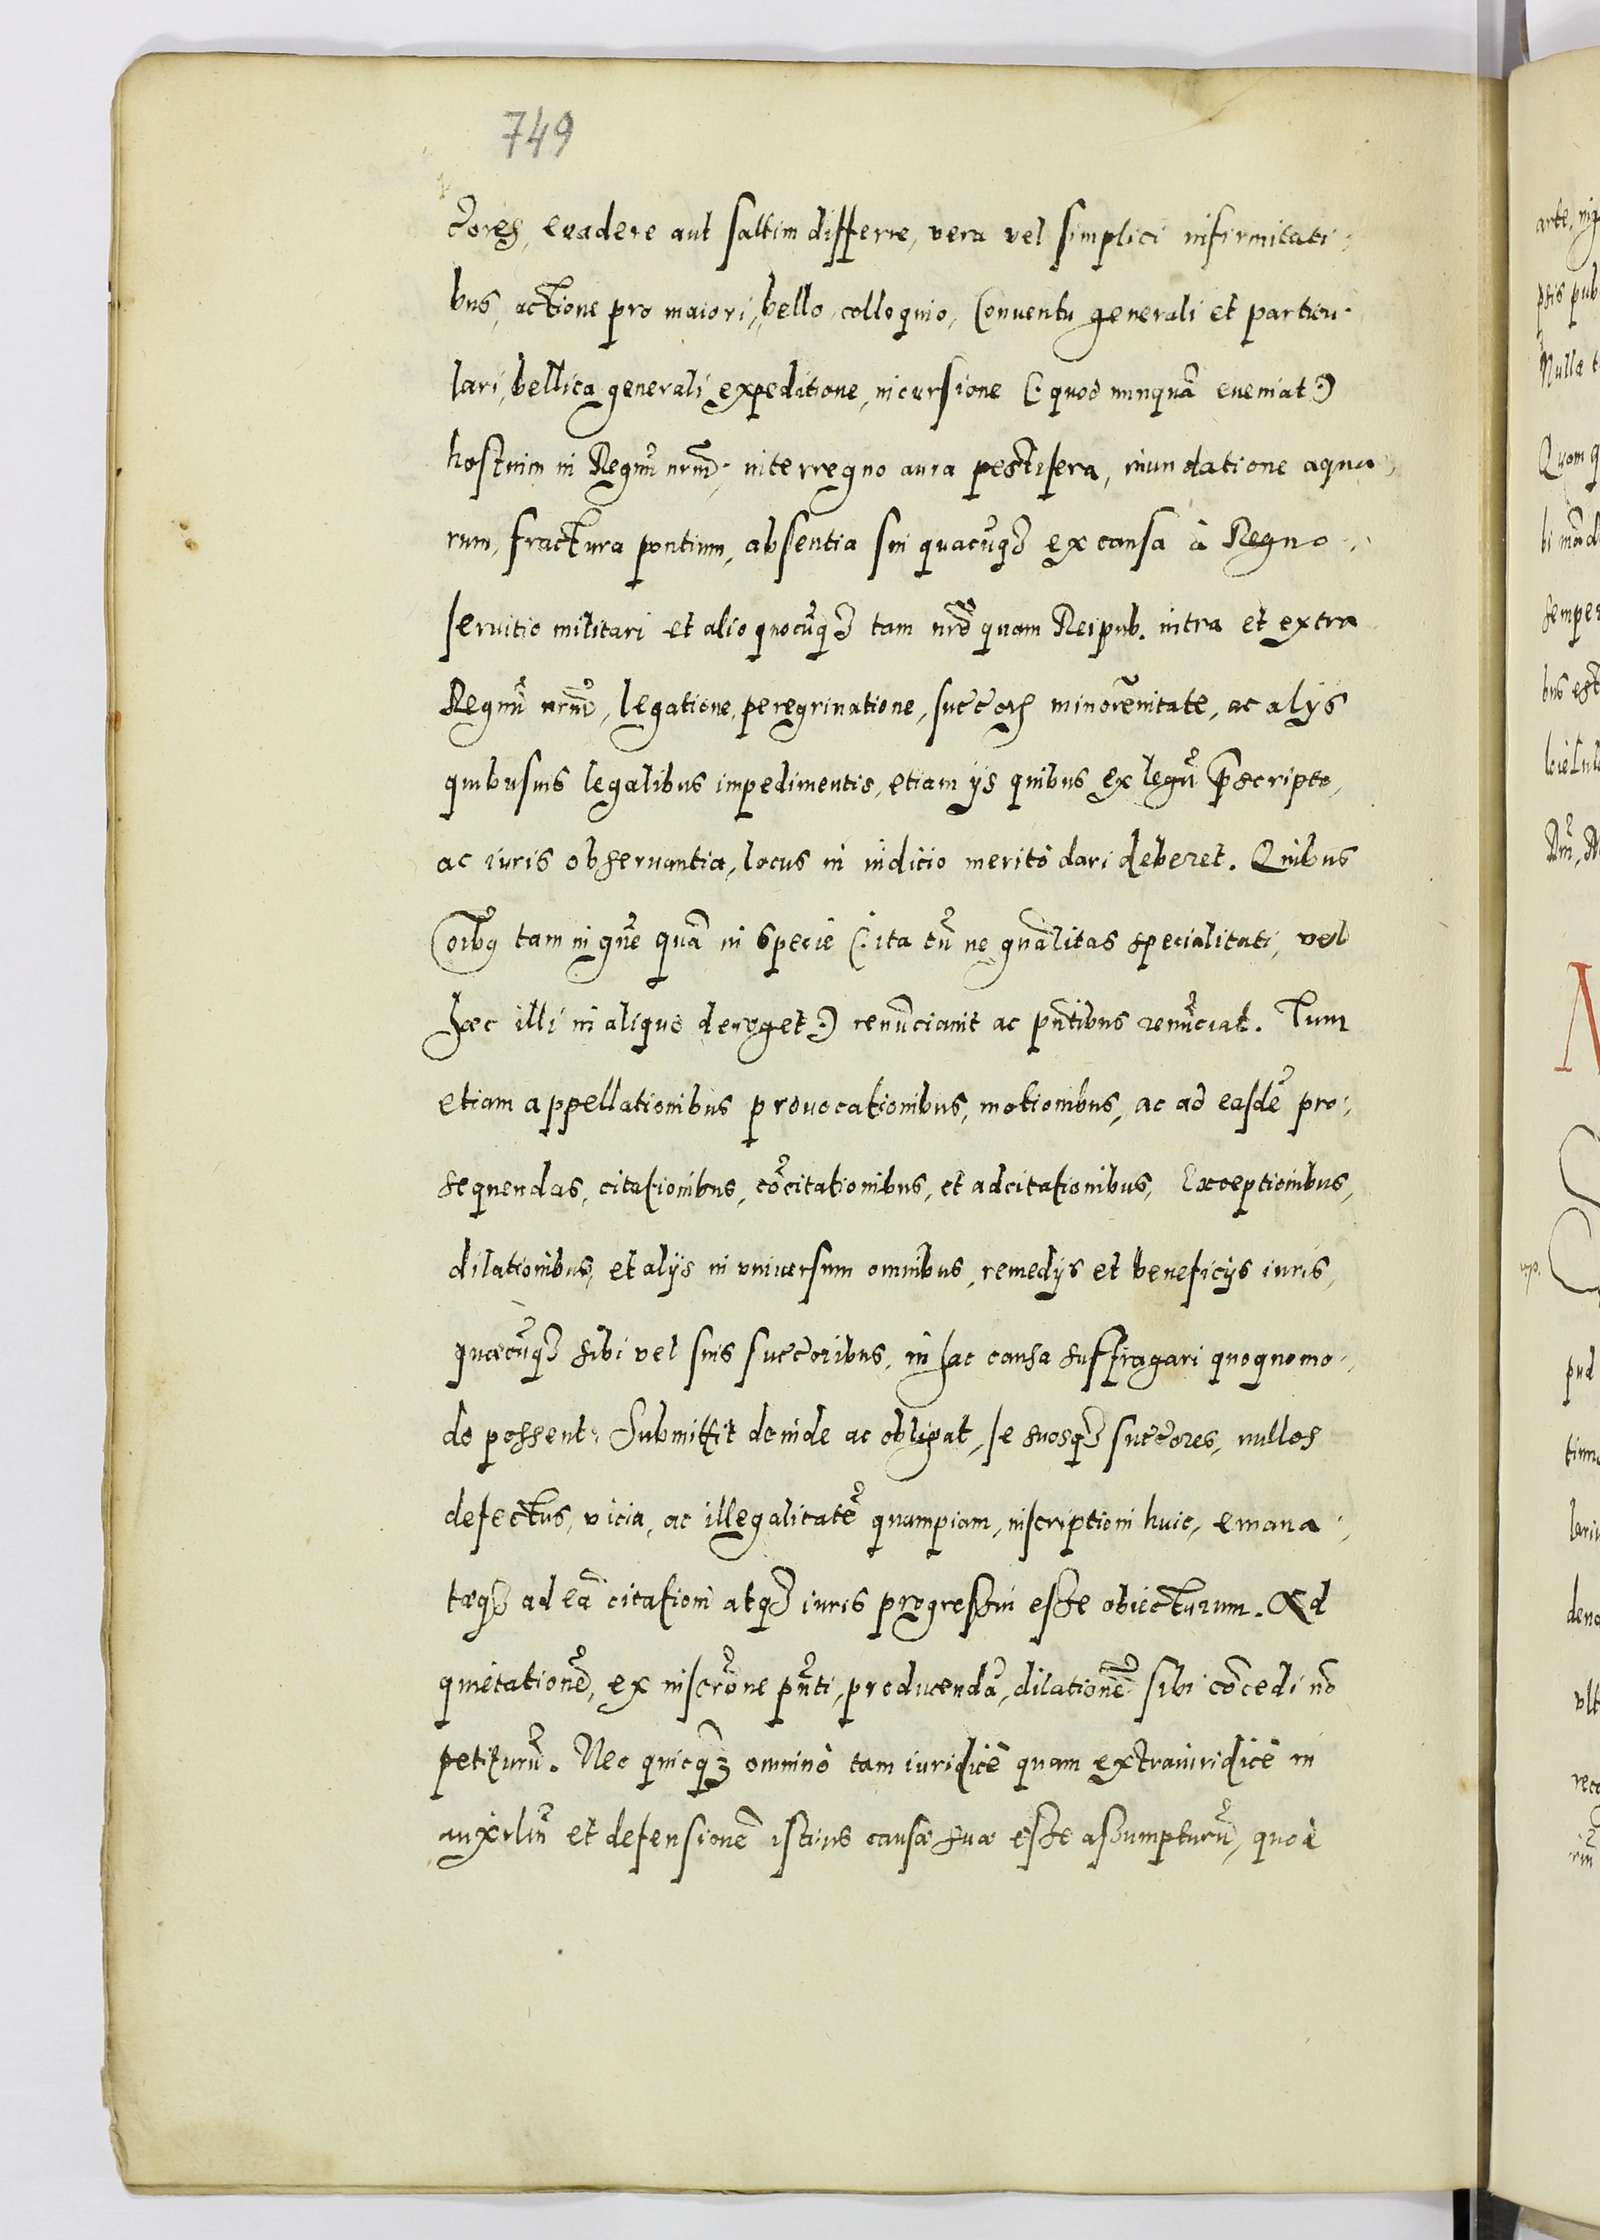 749
ctores, euadere aut saltim differre, vera vel simplici infirmitati-
bus, actione pro maiori, bello, colloquio, Conuentu generali et particu-
lari, bellica generali expeditione, incursione (: quod nunquã eueniat :)
hostium in Regnũ nrũ, interregno aura pestifera, inundatione aqua-
rum, fractura pontium, absentia sui quacũqȝ ex causa à Regno
seruitio militari et alio quocũqȝ tam nrõ quam Reipub. intra et extra
Regnũ nrũ, legatione, peregrinatione, succorũ minorẽnitate, ac alys
quibusuis legalibus impedimentis, etiam ys quibus ex legũ p̃scripto,
ac iuris obseruantia, locus in iudicio meritò dari deberet. Quibus
oĩbq tam in gñe quã in specie (: ita tñ ne gnãlitas specialitati, vel
hæc illi in aliquo deroget :) renũnciauit ac pñtibus renũciat. Tum
etiam appellationibus prouocationibus, motionibus, ac ad easdẽ pro-
sequendas, citationibus, cõcitationibus, et adcitationibus, Exceptionibus,
dilationibus, et alys in vniuersum omnibus, remedys et beneficys iuris,
quæcũqȝ sibi vel suis succoribus, in hac causa suffragari quoquomo-
do possent. Submittit deinde ac obligat, se suosqȝ succores, nullos
defectus, vicia, ac illegalitatẽ quampiam, inscriptioni huic, emana-
tæqȝ ad eã citationi atqȝ iuris progressui esse obiecturum. Ad
quietationẽ, ex inscrõne pñti, producendã, dilationẽ sibi cõcedi nõ
petiturũ. Nec quicqȝ omninò tam iuridicè quam extraiuridicè in
auxiliũ et defensionẽ istius causæ suæ esse assumpturũ, quo è